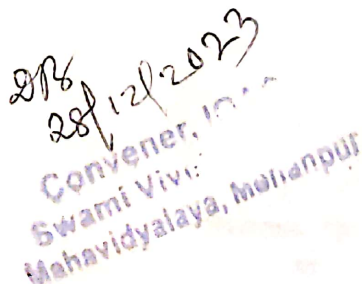 28/12/2023
Convener,
Swami
Mahavidyalaya, Mohanpur